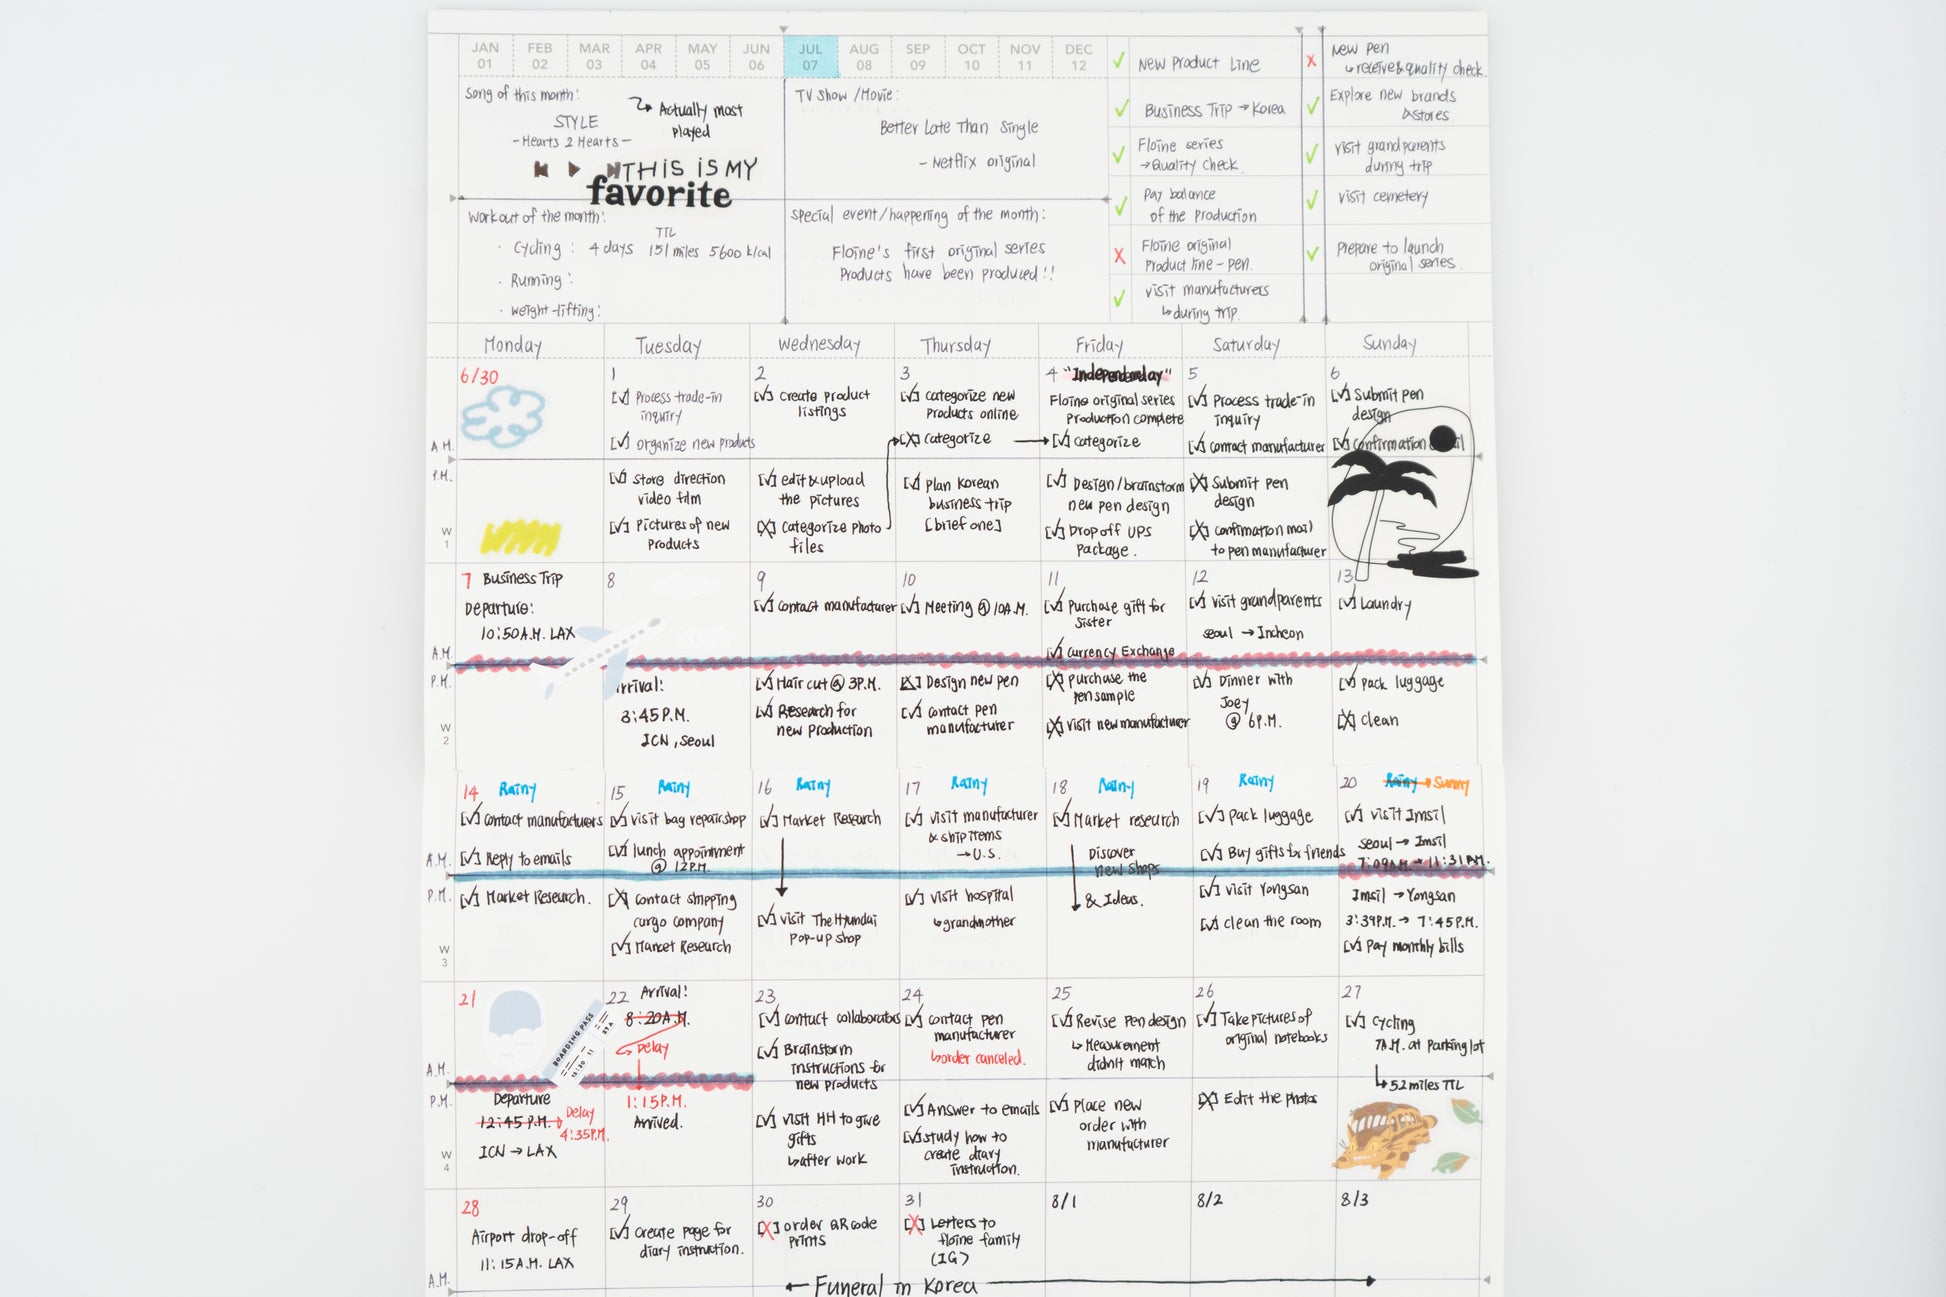 JAN FEB MAR APR MAY JUN JUL AUG SEP OCT NOV DEC
01 02 03 04 05 06 07 08 09 10 11 12
Song of this month:
Actually most
played
STYLE
- Hearts 2 Hearts -
THIS IS MY
favorite
TV Show / Movie:
Better Late Than Single
- Netflix original
Workout of the month:
TTL
· Cycling : 4 days 151 miles 5600 k/cal
· Running :
· Weight-lifting:
Special event/happening of the month:
Floine's first original series
Products have been produced!!
✓ New Product Line
✓ Business Trip → Korea
✓ Floine series
→ Quality check.
✓ Pay balance
of the production
X Floine original
Product line - pen.
✓ Visit manufacturers
↳ during trip.
X New pen
↳ receive & quality check.
✓ Explore new brands
& stores
✓ Visit grandparents
during trip
✓ Visit cemetery
✓ Prepare to launch
original series.
Monday Tuesday Wednesday Thursday Friday Saturday Sunday
A.M.
P.M.
W
1
6/30
1
[✓] Process trade-in
inquiry
[✓] Organize new products
[✓] Store direction
video film
[✓] Pictures of new
Products
2
[✓] Create product
listings
[✓] edit & upload
the pictures
[X] Categorize photo
files
3
[✓] Categorize new
Products online
[X] Categorize →
[✓] Plan Korean
business trip
[brief one]
4 "Independenday"
Floine original series
Production complete
[✓] Categorize
[✓] Design/brainstorm
new pen design
[✓] Drop off UPS
Package.
5
[✓] Process trade-in
inquiry
[✓] Contact manufacturer
[X] Submit pen
design
[X] Confirmation mail
to pen manufacturer
6
[✓] Submit pen
design
[✓] Confirmation
A.M.
P.M.
W
2
7 Business Trip
Departure:
10:50 A.M. LAX
8
rrival:
3:45 P.M.
ICN, Seoul
9
[✓] Contact manufacturer
[✓] Hair cut @ 3P.M.
[✓] Research for
new production
10
[✓] Meeting @ 10A.M.
Design new pen
[✓] Contact pen
manufacturer
11
[✓] Purchase gift for
Sister
[✓] Currency Exchange
[X] Purchase the
pen sample
[X] Visit new manufacturer
12
[✓] Visit grandparents
Seoul → Incheon
[✓] Dinner with
Joey
@ 6 P.M.
13
[✓] Laundry
[✓] Pack luggage
[X] Clean
A.M.
P.M.
W
3
14 Rainy
[✓] Contact manufacturers
[✓] Reply to emails
[✓] Market Research.
15 Rainy
[✓] Visit bag repairshop
[✓] lunch appointment
@ 12P.M.
[X] Contact shipping
cargo company
[✓] Market Research
16 Rainy
[✓] Market Research
[✓] Visit The Hyundai
Pop-up shop
17 Rainy
[✓] Visit manufacturer
& ship items
→ U.S.
[✓] Visit hospital
↳ grandmother
18 Rainy
[✓] Market research
Discover
new shops
& Ideas.
19 Rainy
[✓] Pack luggage
[✓] Buy gifts for friends
[✓] Visit Yongsan
[✓] Clean the room
20 Rainy → Sunny
[✓] Visit Imsil
Seoul → Imsil
7:09A.M. → 11:31A.M.
Imsil → Yongsan
3:39P.M. → 7:45P.M.
[✓] Pay monthly bills
A.M.
P.M.
W
4
21
BOARDING PASS
Departure
12:45 P.M. → Delay
4:35P.M.
ICN → LAX
22 Arrival!
8:20A.M.
Delay
1:15P.M.
Arrived.
23
[✓] Contact collaborators
[✓] Brainstorm
instructions for
new products
[✓] Visit HH to give
gifts
↳ after work
24
[✓] Contact pen
manufacturer
↳ order canceled.
[✓] Answer to emails
[✓] Study how to
create diary
instruction.
25
[✓] Revise pen design
↳ Measurement
didn't match
[✓] Place new
order with
manufacturer
26
[✓] Take pictures of
original notebooks
[X] Edit the photos
27
[✓] Cycling
7A.M. at Parking lot
↳ 52 miles TTL
A.M.
28
Airport drop-off
11:15 A.M. LAX
29
[✓] Create page for
diary instruction.
30
[X] Order QR code
Prints
31
[X] Letters to
floine family
(IG)
8/1
8/2
8/3
← Funeral in Korea →